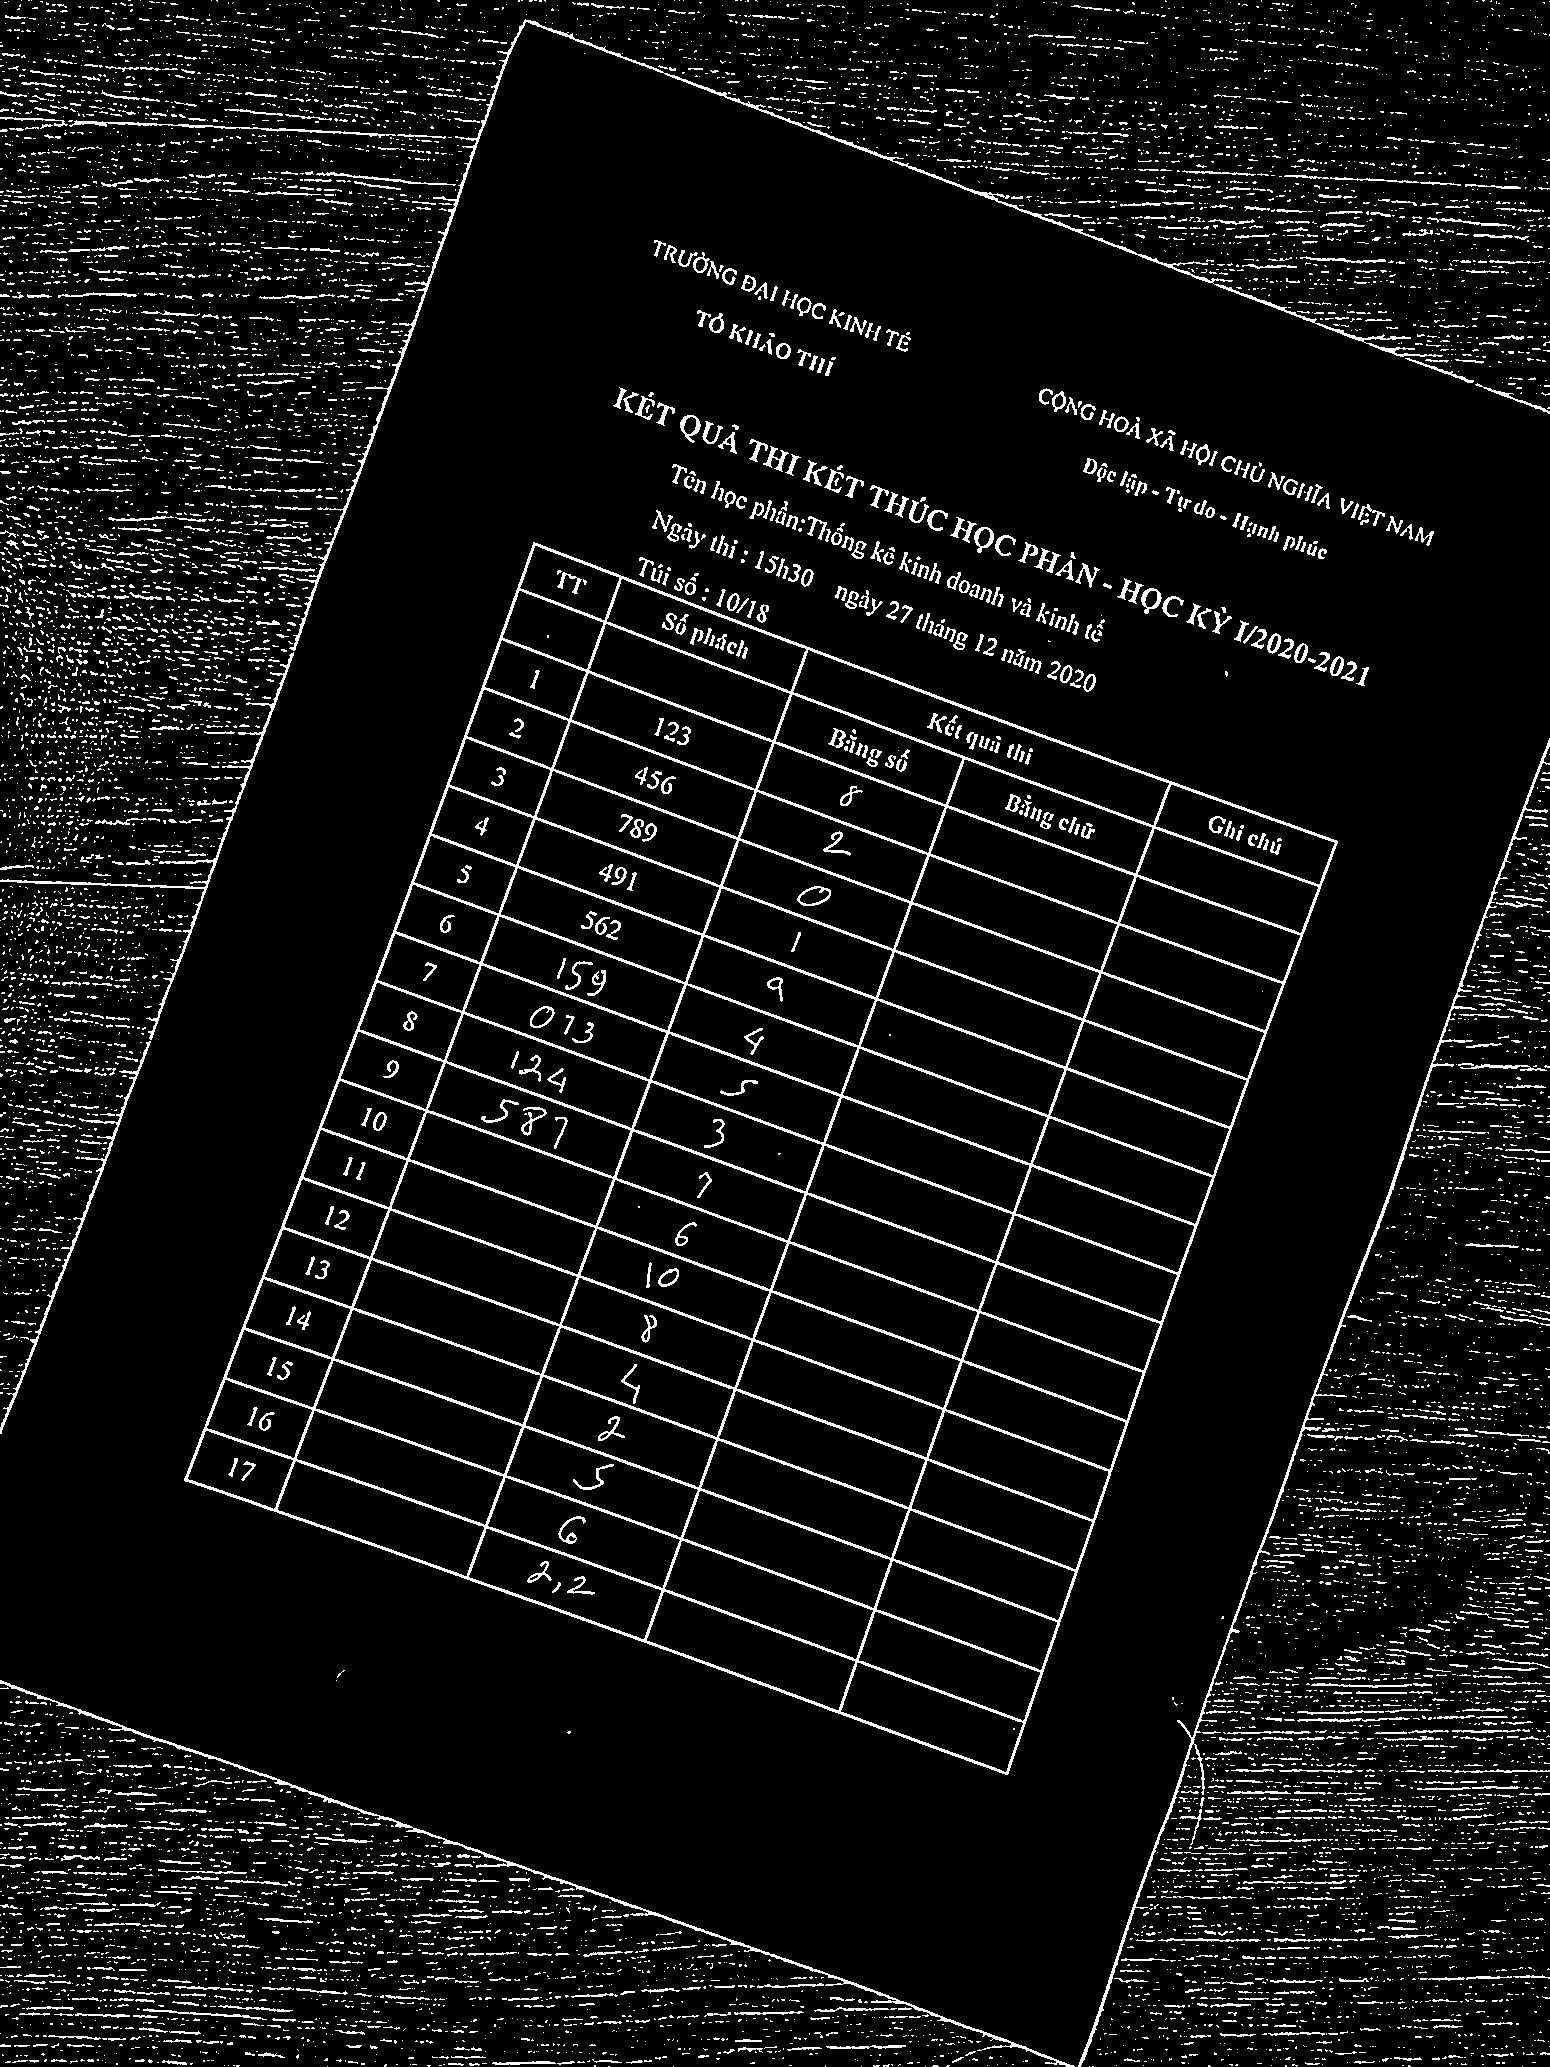 TRƯỜNG ĐẠI HỌC KINH TẾ
TỔ KHẢO THÍ
CỘNG HOÀ XÃ HỘI CHỦ NGHĨA VIỆT NAM
Độc lập - Tự do - Hạnh phúc
KẾT QUẢ THI KẾT THÚC HỌC PHẦN - HỌC KỲ I/2020-2021
Tên học phần:Thống kê kinh doanh và kinh tế
Ngày thi : 15h30 ngày 27 tháng 12 năm 2020
Túi số : 10/18
TT Số phách Kết quả thi
Bằng số Bằng chữ Ghi chú
1 123 8
2 456 2
3 789 0
4 491 1
5 562 9
6 159 4
7 073 5
8 124 3
9 587 7
10 6
11 10
12 8
13 4
14 2
15 5
16 6
17 2,2